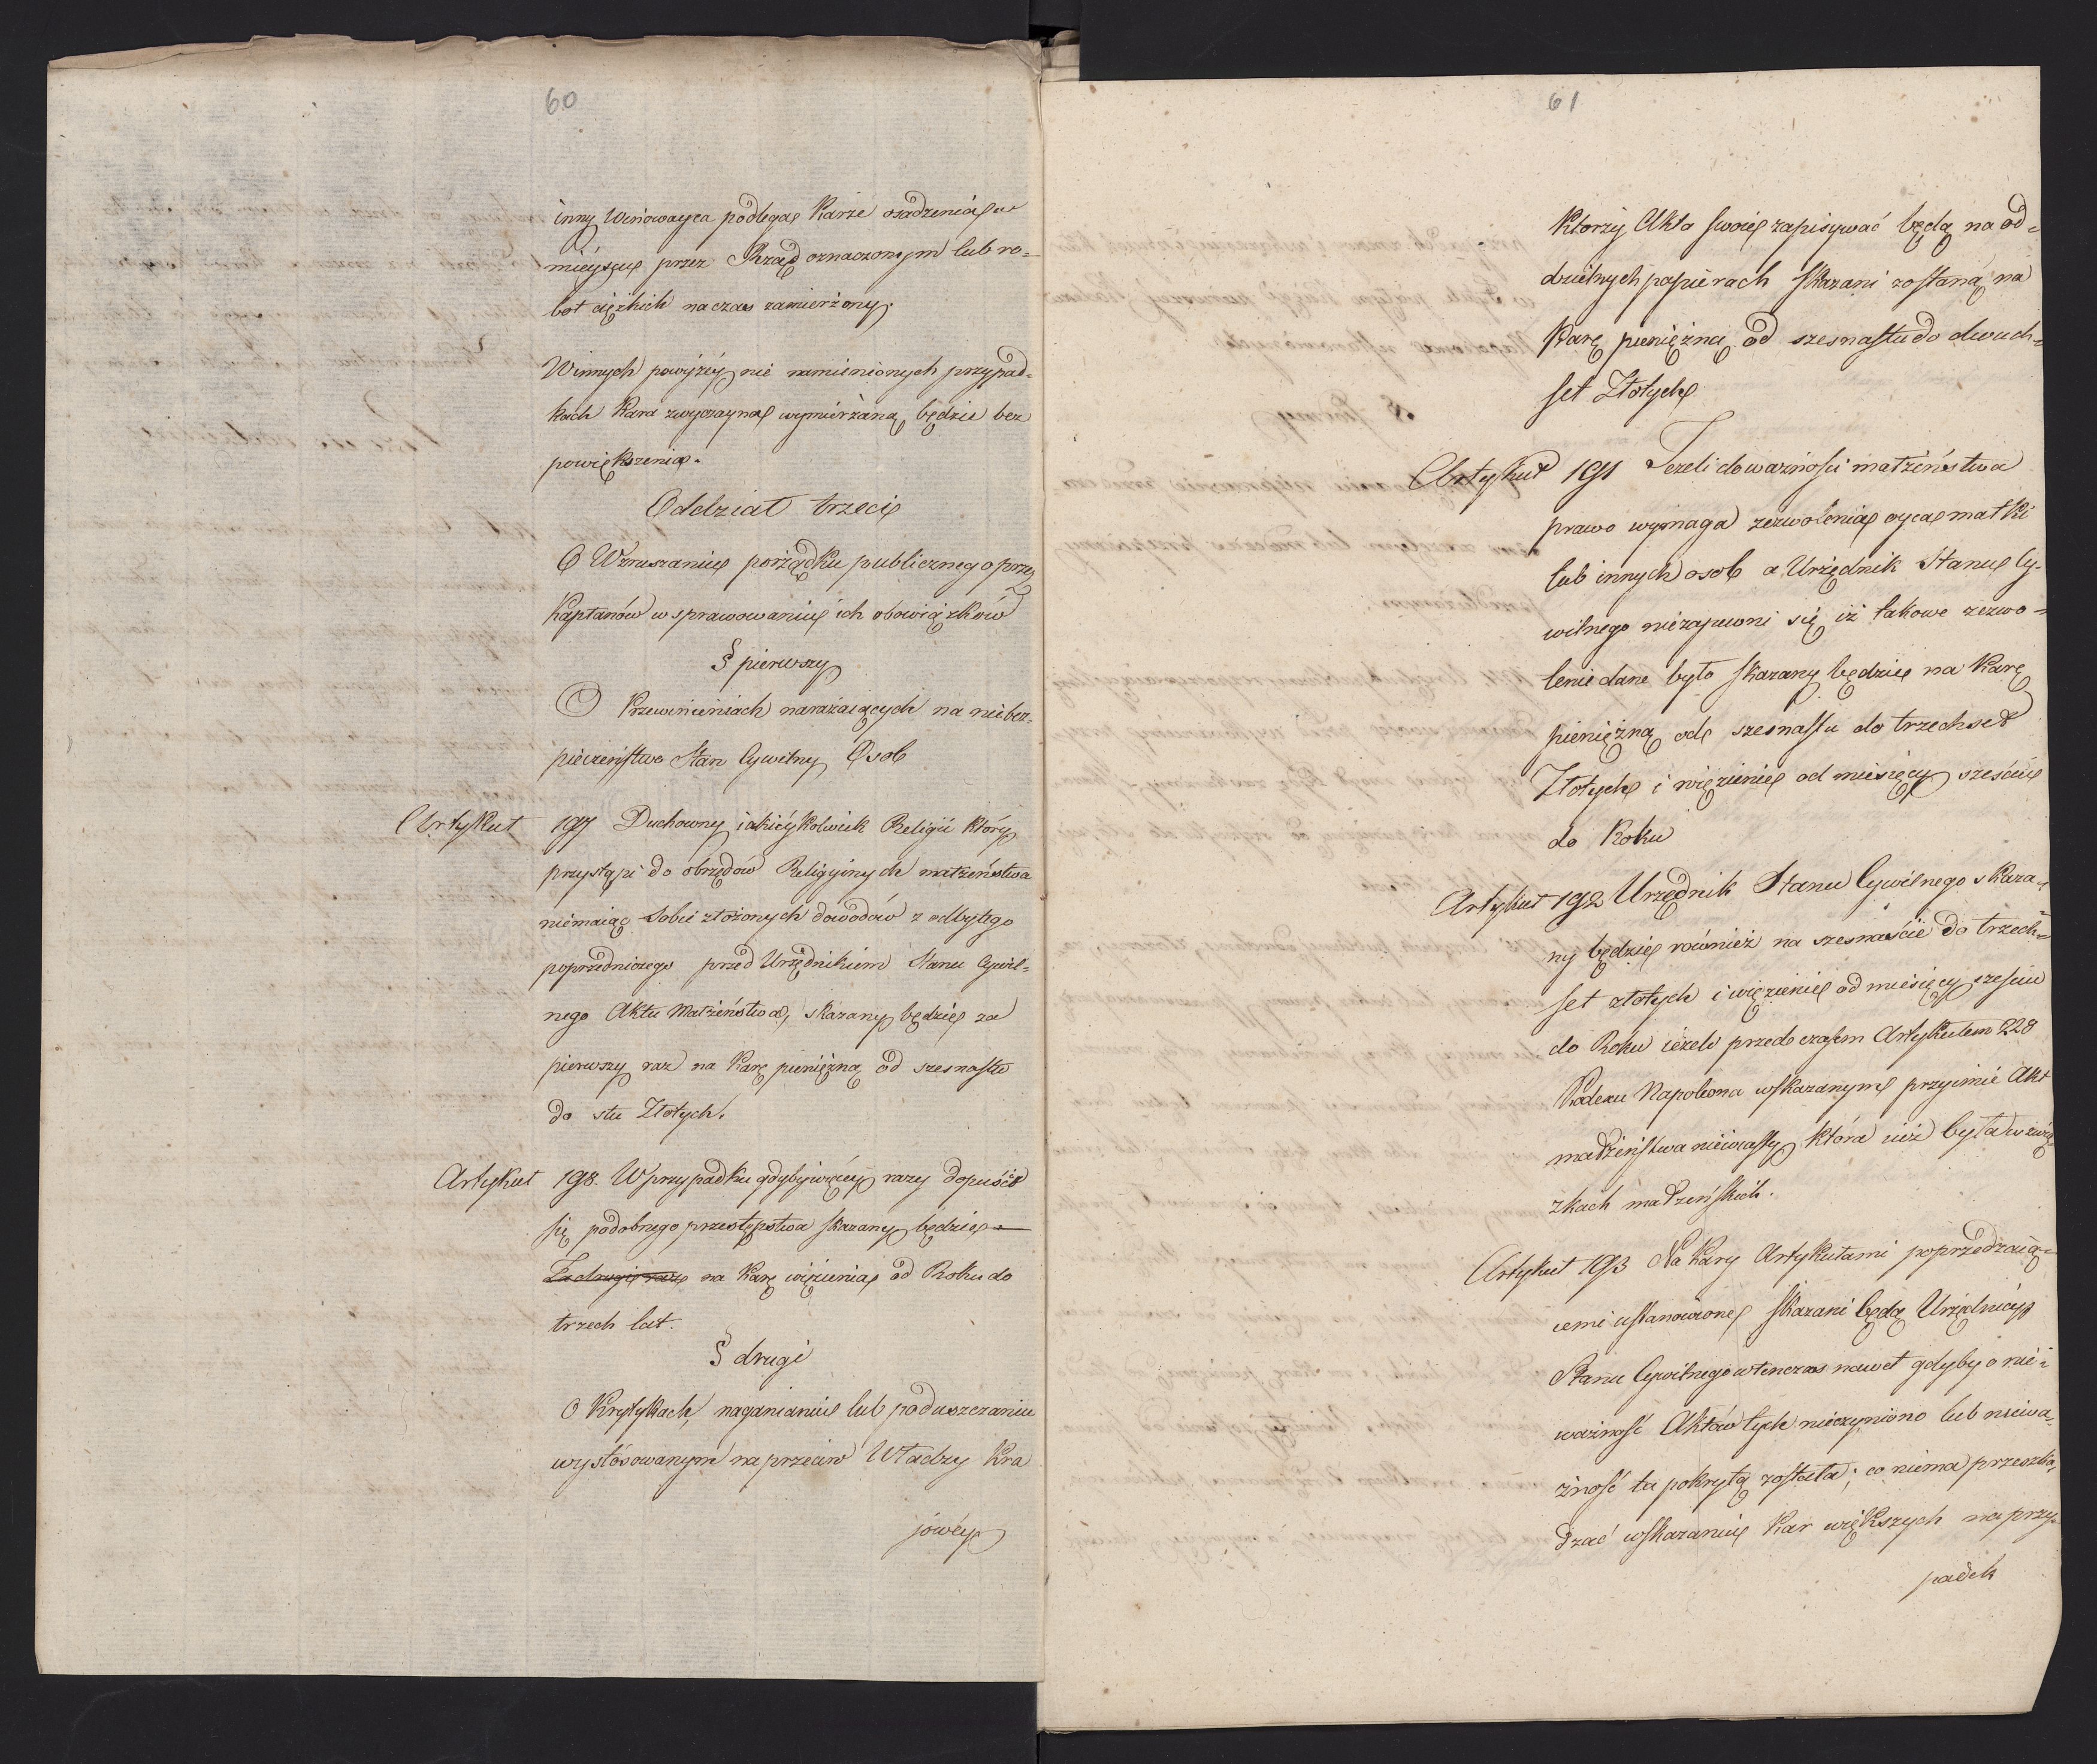 60
inny Winowayca podlegać Karze osadzenia w
mieyscu przez Rząd oznaczonym lub ro=
bot cięzkich na czas zamierzony.
W innych powyżéy nie namienionych przypad=
kach Kara zwyczayna wymierzaną będzie bez
powiększenia.
Oddział trzeci
O Wzruszaniu porządku publicznego przez
Kapłanów w sprawowaniu ich obowiązków
§ pierwszy
O Przewinieniach narażaiących na niebez=
pieczeństwo Stan Cywilny Osob
Artykuł 197 Duchowny iakieykolwiek Religii który
przystąpi do obrzędów Religyinych małżeństwa
niemaiąc Sobie złożonych dowodów z odbytego
poprzedniczego przed Urzędnikiem Stanu Cywil=
nego Aktu Małżeństwa, skazany będzie za
pierwszy raz na Karę pieniężną od szesnastu
do stu Złotych.
Artykuł 198. W przypadku gdyby więcéy razy dopuścił
się podobnego przestępstwa skazany będzie
Za drugi raz na Karę więzienia od Roku do
trzech lat.
§ drugi
O Krytykach, naganianiu lub poduszczaniu
wystósowanym na przeciw Władzy Kra
jowéy
61
Którzy Akta swoie zapisywać będą na od=
dzielnych papierach skazani zostaną na
Karę pieniężną od szesnastu do dwuch=
set Złotych
Artykuł 191 Jeżeli do ważności małżeństwa
prawo wymaga zezwolenia oyca matki
lub innych osob a Urzędnik Stanu Cy=
wilnego niezapewni się iż takowe zezwo=
lenie dane było skazany będzie na Karę
pieniężną od szesnastu do trzechset
Złotych i więzienie od miesięcy sześciu
do Roku
Artykuł 192 Urzędnik Stanu Cywilnego skaza=
ny będzie również na szesnaście do trzech=
set złotych i więzienie od miesięcy szesciu
do Roku ieżeli przed czasem Artykułem 228
Kodexu Napoleona wskazanym przyimie Akt
małżeństwa niewiasty która iuż była w zwią
zkach małżeńskich.
Artykuł 193 Na Kary Artykułami poprzedzaią=
cemi ustanowione skazani będą Urzędnicy
Stanu Cywilnego wtenczas nawet gdyby o nie=
ważność Aktów tych nieczyniono lub niewa=
żność ta pokrytą została; co niema przeszka=
dzać wskazaniu Kar większych na przy=
padek